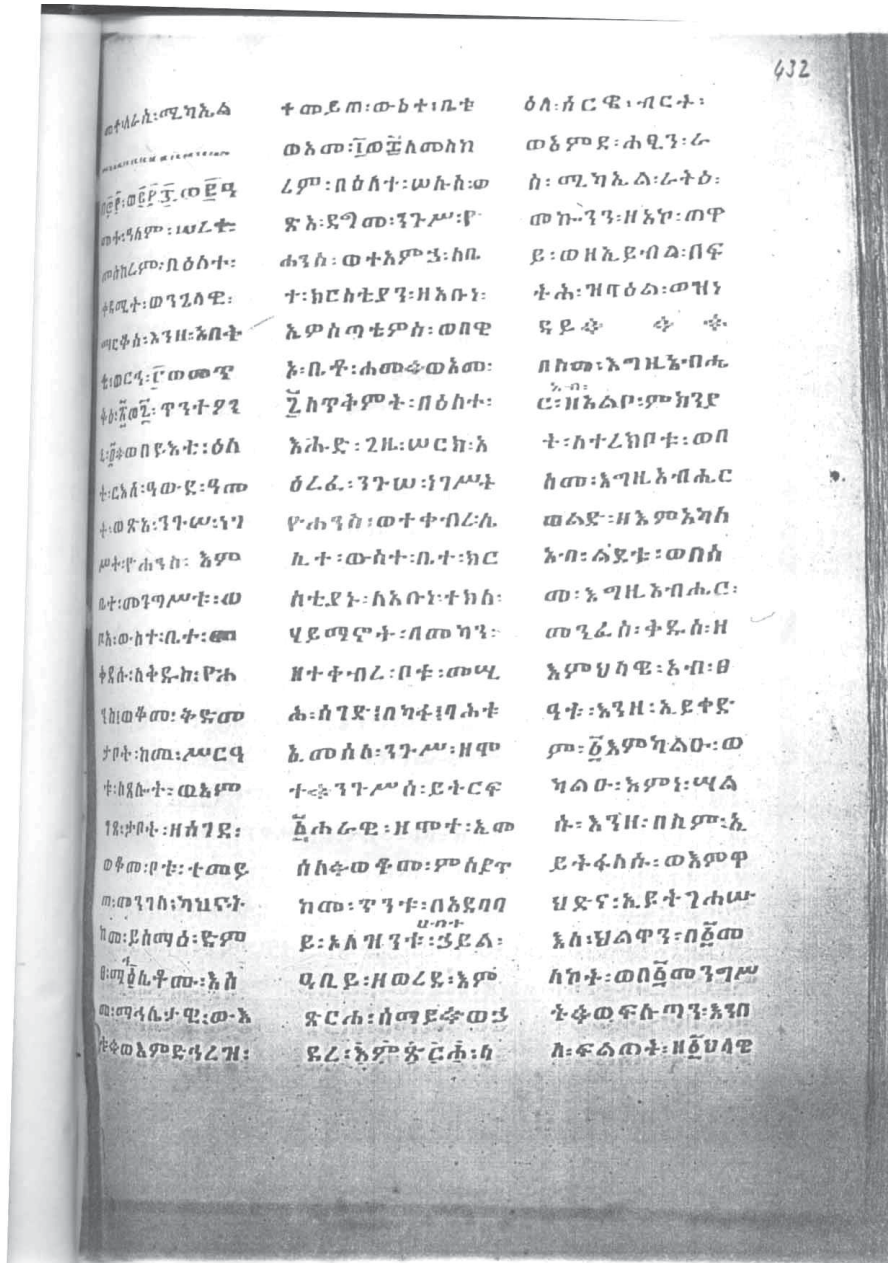 432
መተ፡ራስ፡ሚካኤል
መተ፡ዓለም፡
መስከረም፡በዕለተ፡
ቀዳሚት፡ወንጌላዊ፡
ማርቆስ፡እንዘ፡አበቅ
ቴ፡ወርኅ፡፫ወመጥ
ቅዕ፡ ጥንተዖን
ት፡ርእሰ፡ዓውደ፡ዓመ
ት፡ወጽአ፡ንጉሠ፡ነገ
ሥት፡ዮሐንስ፡ እም
ቤተ፡መንግሥቱ፡ወ
ቦአ፡ውስተ፡ቤተ፡
ቀደሱ፡ለቅዱስ፡ዮሐ
ንስ፡ወቆመ፡ቅድመ
ታቦት፡ከመ፡ሥርዓ
ቱ፡ለጸሎት፡ወእም
ኀበ፡ታቦት፡ዘሰገደ፡
ወቆመ፡ቦቱ፡ተመይ
ጠ፡መንገለ፡ካህናት
ከመ፡ይስማዕ፡ድም
ፀ፡ማኅሌቶሙ፡እስ
መ፡ማኅሌታዊ፡ውእ
ቱ፨ወእምድኅረዝ፡
ተመይጠ፡ውእተ፡ቤቱ
ወአመ፡፲ወ፰ለመስከ
ረም፡በዕለተ፡ሠሉስ፡ወ
ጽአ፡ደግመ፡ንጉሥ፡ዮ
ሐንስ፡ወተአምኃ፡ስቤ
ተ፡ክርስቲያን፡ዘአቡነ፡
ኤዎስጣቴዎስ፡ወበዊ
ኦ፡ቤቶ፡ሐመ፨ወአመ፡
፯ለጥቅምት፡በዕለተ፡
እሑድ፡ጊዜ፡ሠርክ፡አ
ዕረፈ፡ንጉሠ፡ነገሥት
ዮሐንስ፡ወተቀብረ፡ሌ
ሊተ፡ውስተ፡ቤተ፡ክር
ስቲያኑ፡ለአቡነ፡ተክለ፡
ሃይማኖት፡በመካን፡
ዘተቀብረ፡ቦቱ፡መሢ
ሐ፡ሰገድ፡በካፋ፡ባሕቱ
ኢመሰለ፡ንጉሥ፡ዘሞ
ተ፨ንጉሥሰ፡ይትርፍ
፩ሐራዊ፡ዘሞተ፡ኢመ
ሰለ፨ወቆመ፡ምስያጥ
ከመ፡ጥንቱ፡በአደባባ
ሀብተ
ይ፡እለዝንቱ፡ኃይል፡
ዓቢይ፡ዘወረደ፡እም
ጽርሐ፡ሰማይ፨ወኃ
ደረ፡እምጽርሐ፡ላ
ዕለ፡ሰርዌ፡ብርት፡
ወእምደ፡ሐፂን፡ራ
ስ፡ሚካኤል፡ራትዕ፡
መኰንን፡ዘአኮ፡ጠዋ
ይ፡ወዘኢይብል፡በፍ
ትሕ፡ዝባዕል፡ወዝነ
ዳይ፨ ፨ ፨
በስመ፡እግዚኣብሔ
አብ፡
ር፡ዘአልቦ፡ምክንያ
ት፡ለተረክቦቱ፡ወበ
ስመ፡እግዚአብሔር
ወልድ፡ዘእምአካለ
አብ፡ልደቱ፡ወበስ
መ፡እግዚአብሔር፡
መንፈስ፡ቅዱስ፡ዘ
እምህላዌ፡አብ፡ፀ
ዓቱ፡እንዘ፡ኢይቀድ
ም፡፩እምካልዑ፡ወ
ካልዑ፡እምነ፡ሣል
ሱ፡እንዘ፡በስም፡ኢ
ይትፋለሱ፡ወእምዋ
ህድና፡ኢይትጌሐሡ
እለ፡ህልዋን፡በ፩መ
ለኮት፡ወበ፩መንግሥ
ት፨ወፍሱጣን፡እንበ
ለ፡ፍልጠት፡ዘ፩ህላዌ